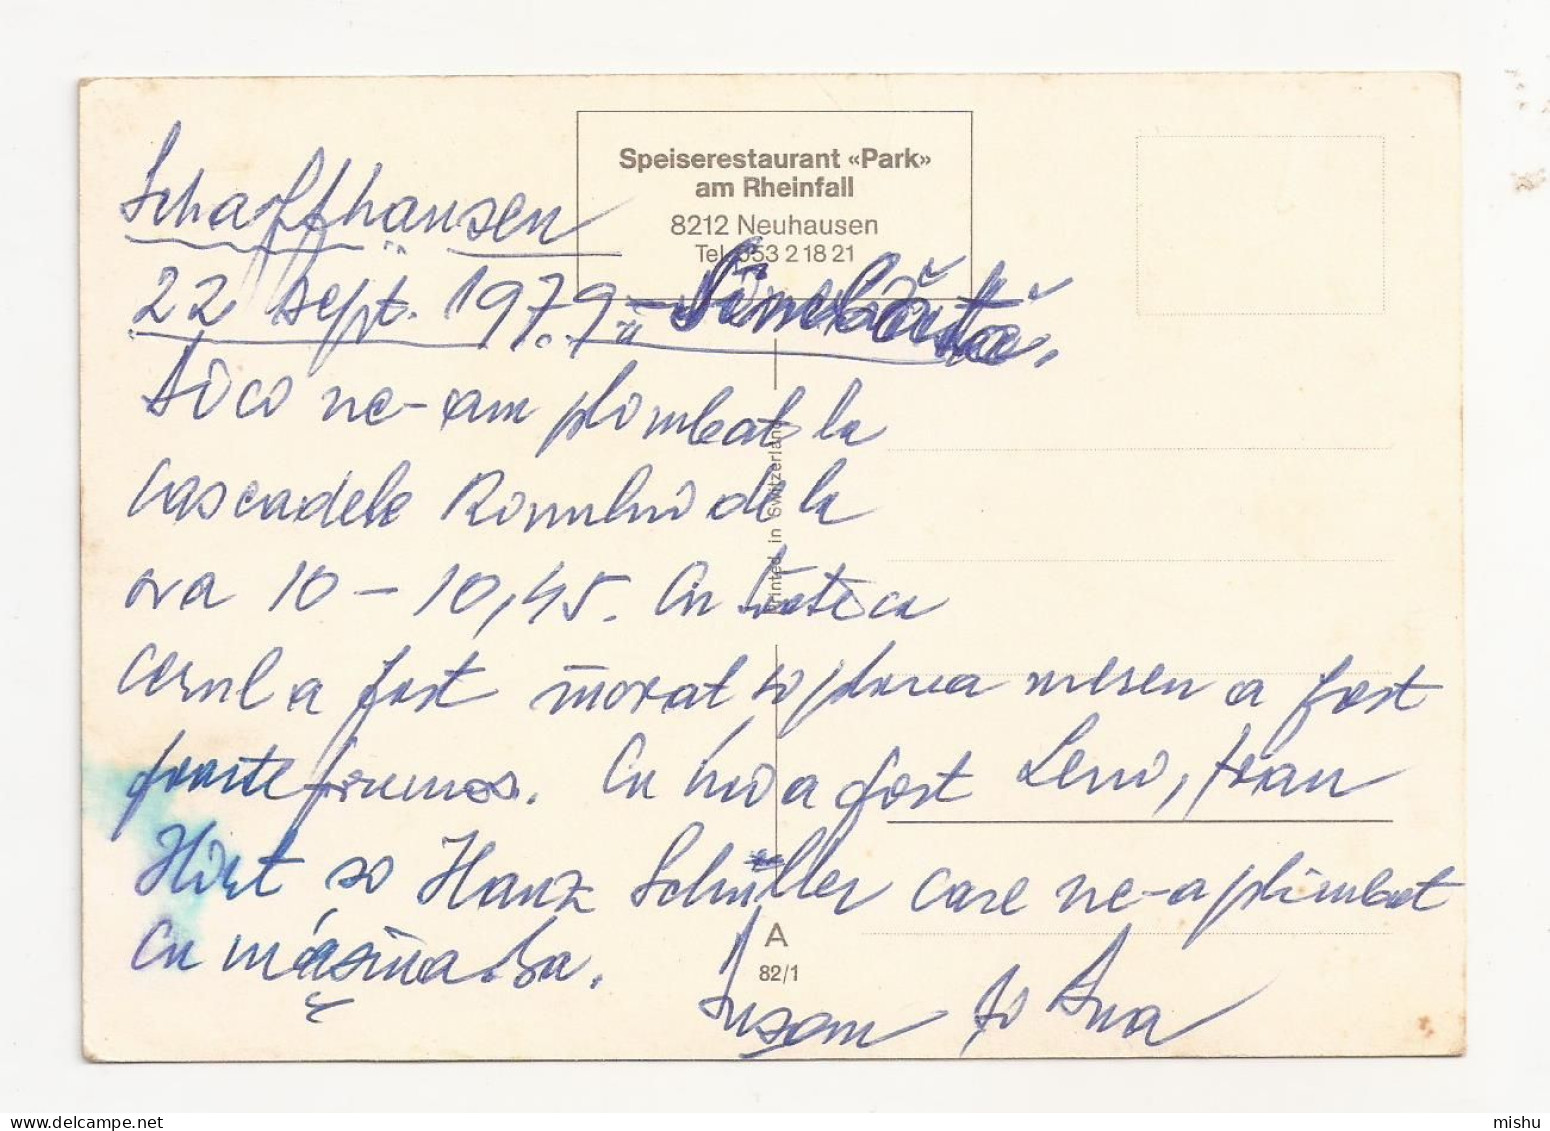 Speiserestaurant «Park»
am Rheinfall
8212 Neuhausen
Tel. 053 2 18 21
Schaffhausen
22 sept. 1979 – Sîmbătă.
Aici ne-am plimbat la
Cascadele Rinului de la
ora 10 – 10,45. Cu toate că
cerul a fost înorat și ploua mersu a fost
foarte frumos. Cu noi a fost Leni, fran
Hirt și Hanz Schüller care ne-a plimbat
cu mășina sa.
Susan și Ana
Printed in Switzerland
A
82/1
mishu